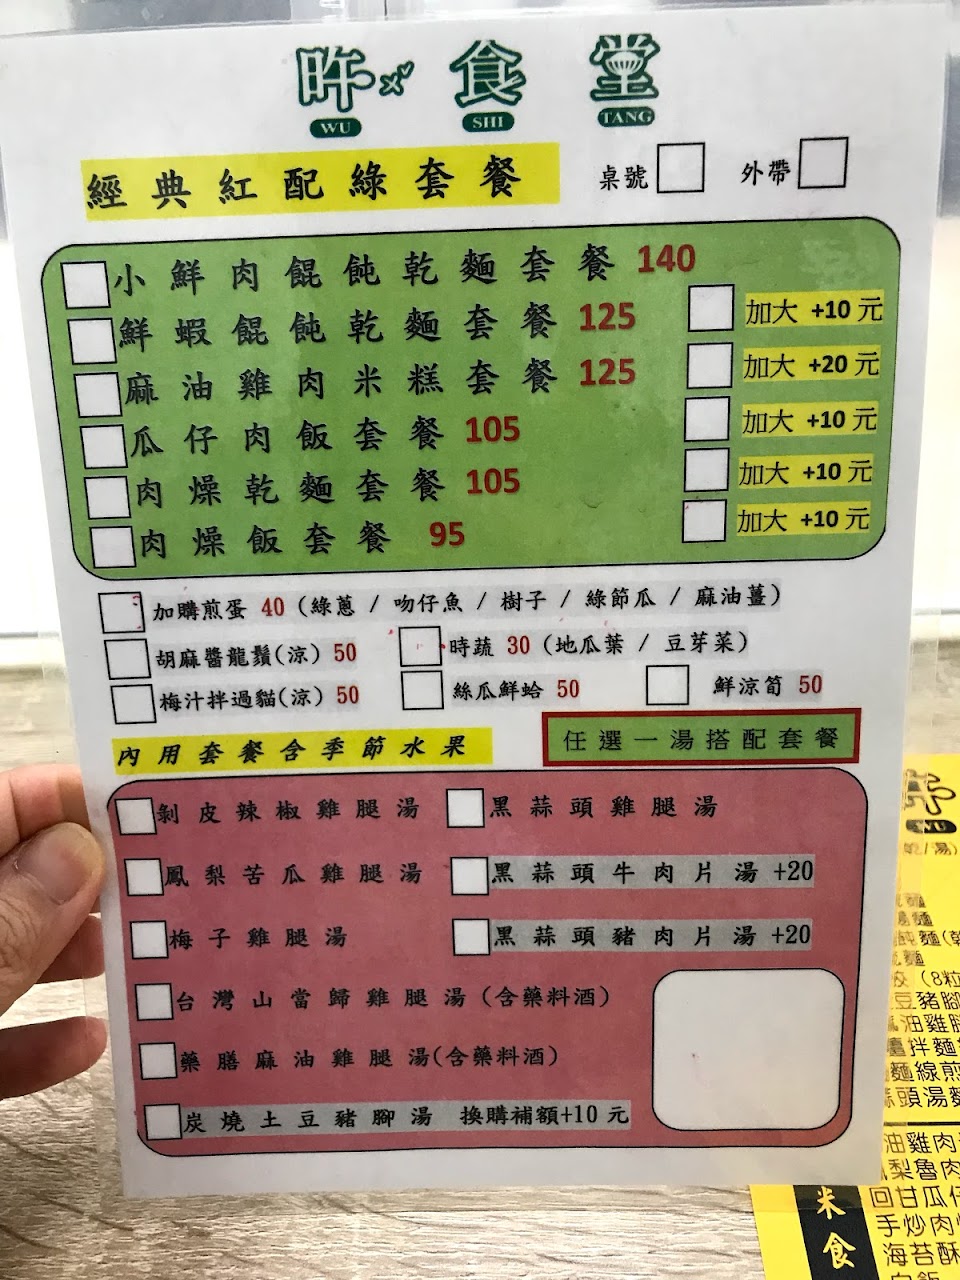 旿ㄨˇ食堂
WU SHI TANG
經典紅配綠套餐 桌號 外帶
小鮮肉餛飩乾麵套餐 140
鮮蝦餛飩乾麵套餐 125 加大 +10 元
麻油雞肉米糕套餐 125 加大 +20 元
瓜仔肉飯套餐 105 加大 +10 元
肉燥乾麵套餐 105 加大 +10 元
肉燥飯套餐 95 加大 +10 元
加購煎蛋 40 (綠蔥 / 吻仔魚 / 樹子 / 綠節瓜 / 麻油薑)
胡麻醬龍鬚(涼) 50 時蔬 30 (地瓜葉 / 豆芽菜)
梅汁拌過貓(涼) 50 絲瓜鮮蛤 50 鮮涼筍 50
內用套餐含季節水果 任選一湯搭配套餐
剝皮辣椒雞腿湯 黑蒜頭雞腿湯
鳳梨苦瓜雞腿湯 黑蒜頭牛肉片湯 +20
梅子雞腿湯 黑蒜頭豬肉片湯 +20
台灣山當歸雞腿湯 (含藥料酒)
藥膳麻油雞腿湯(含藥料酒)
炭燒土豆豬腳湯 換購補額+10 元
乾/湯)
麵
湯麵
飩麵(乾
麵
(8粒
豆豬腳
油雞腿
拌麵
麵線煎
頭湯麵
米食
油雞肉
梨魯肉
回甘瓜仔
手炒肉
海苔酥
白飯